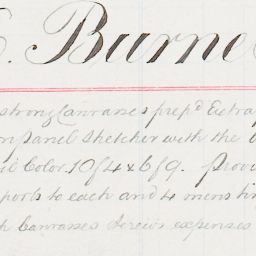 Burne
strong Canvases prep^d Extra
Panel Sketcher with the
Color. 10/4 x 6/9. Provi
ports to each and 4 mens tin
Canvasses Screws expenses